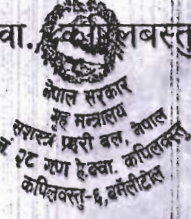 वा. कपिलबस्तु
नेपाल सरकार
गृह मन्त्रालय
सशस्त्र प्रहरी बल, नेपाल
नं २८ गण हे.क्वा. कपिलवस्तु
कपिलवस्तु-६, बर्मेलीटोल